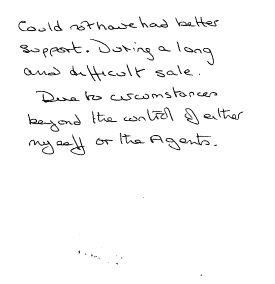 Could not have had better
support. During a long
and difficult sale.
Due to circumstances
beyond the control of either
myself or the Agents.